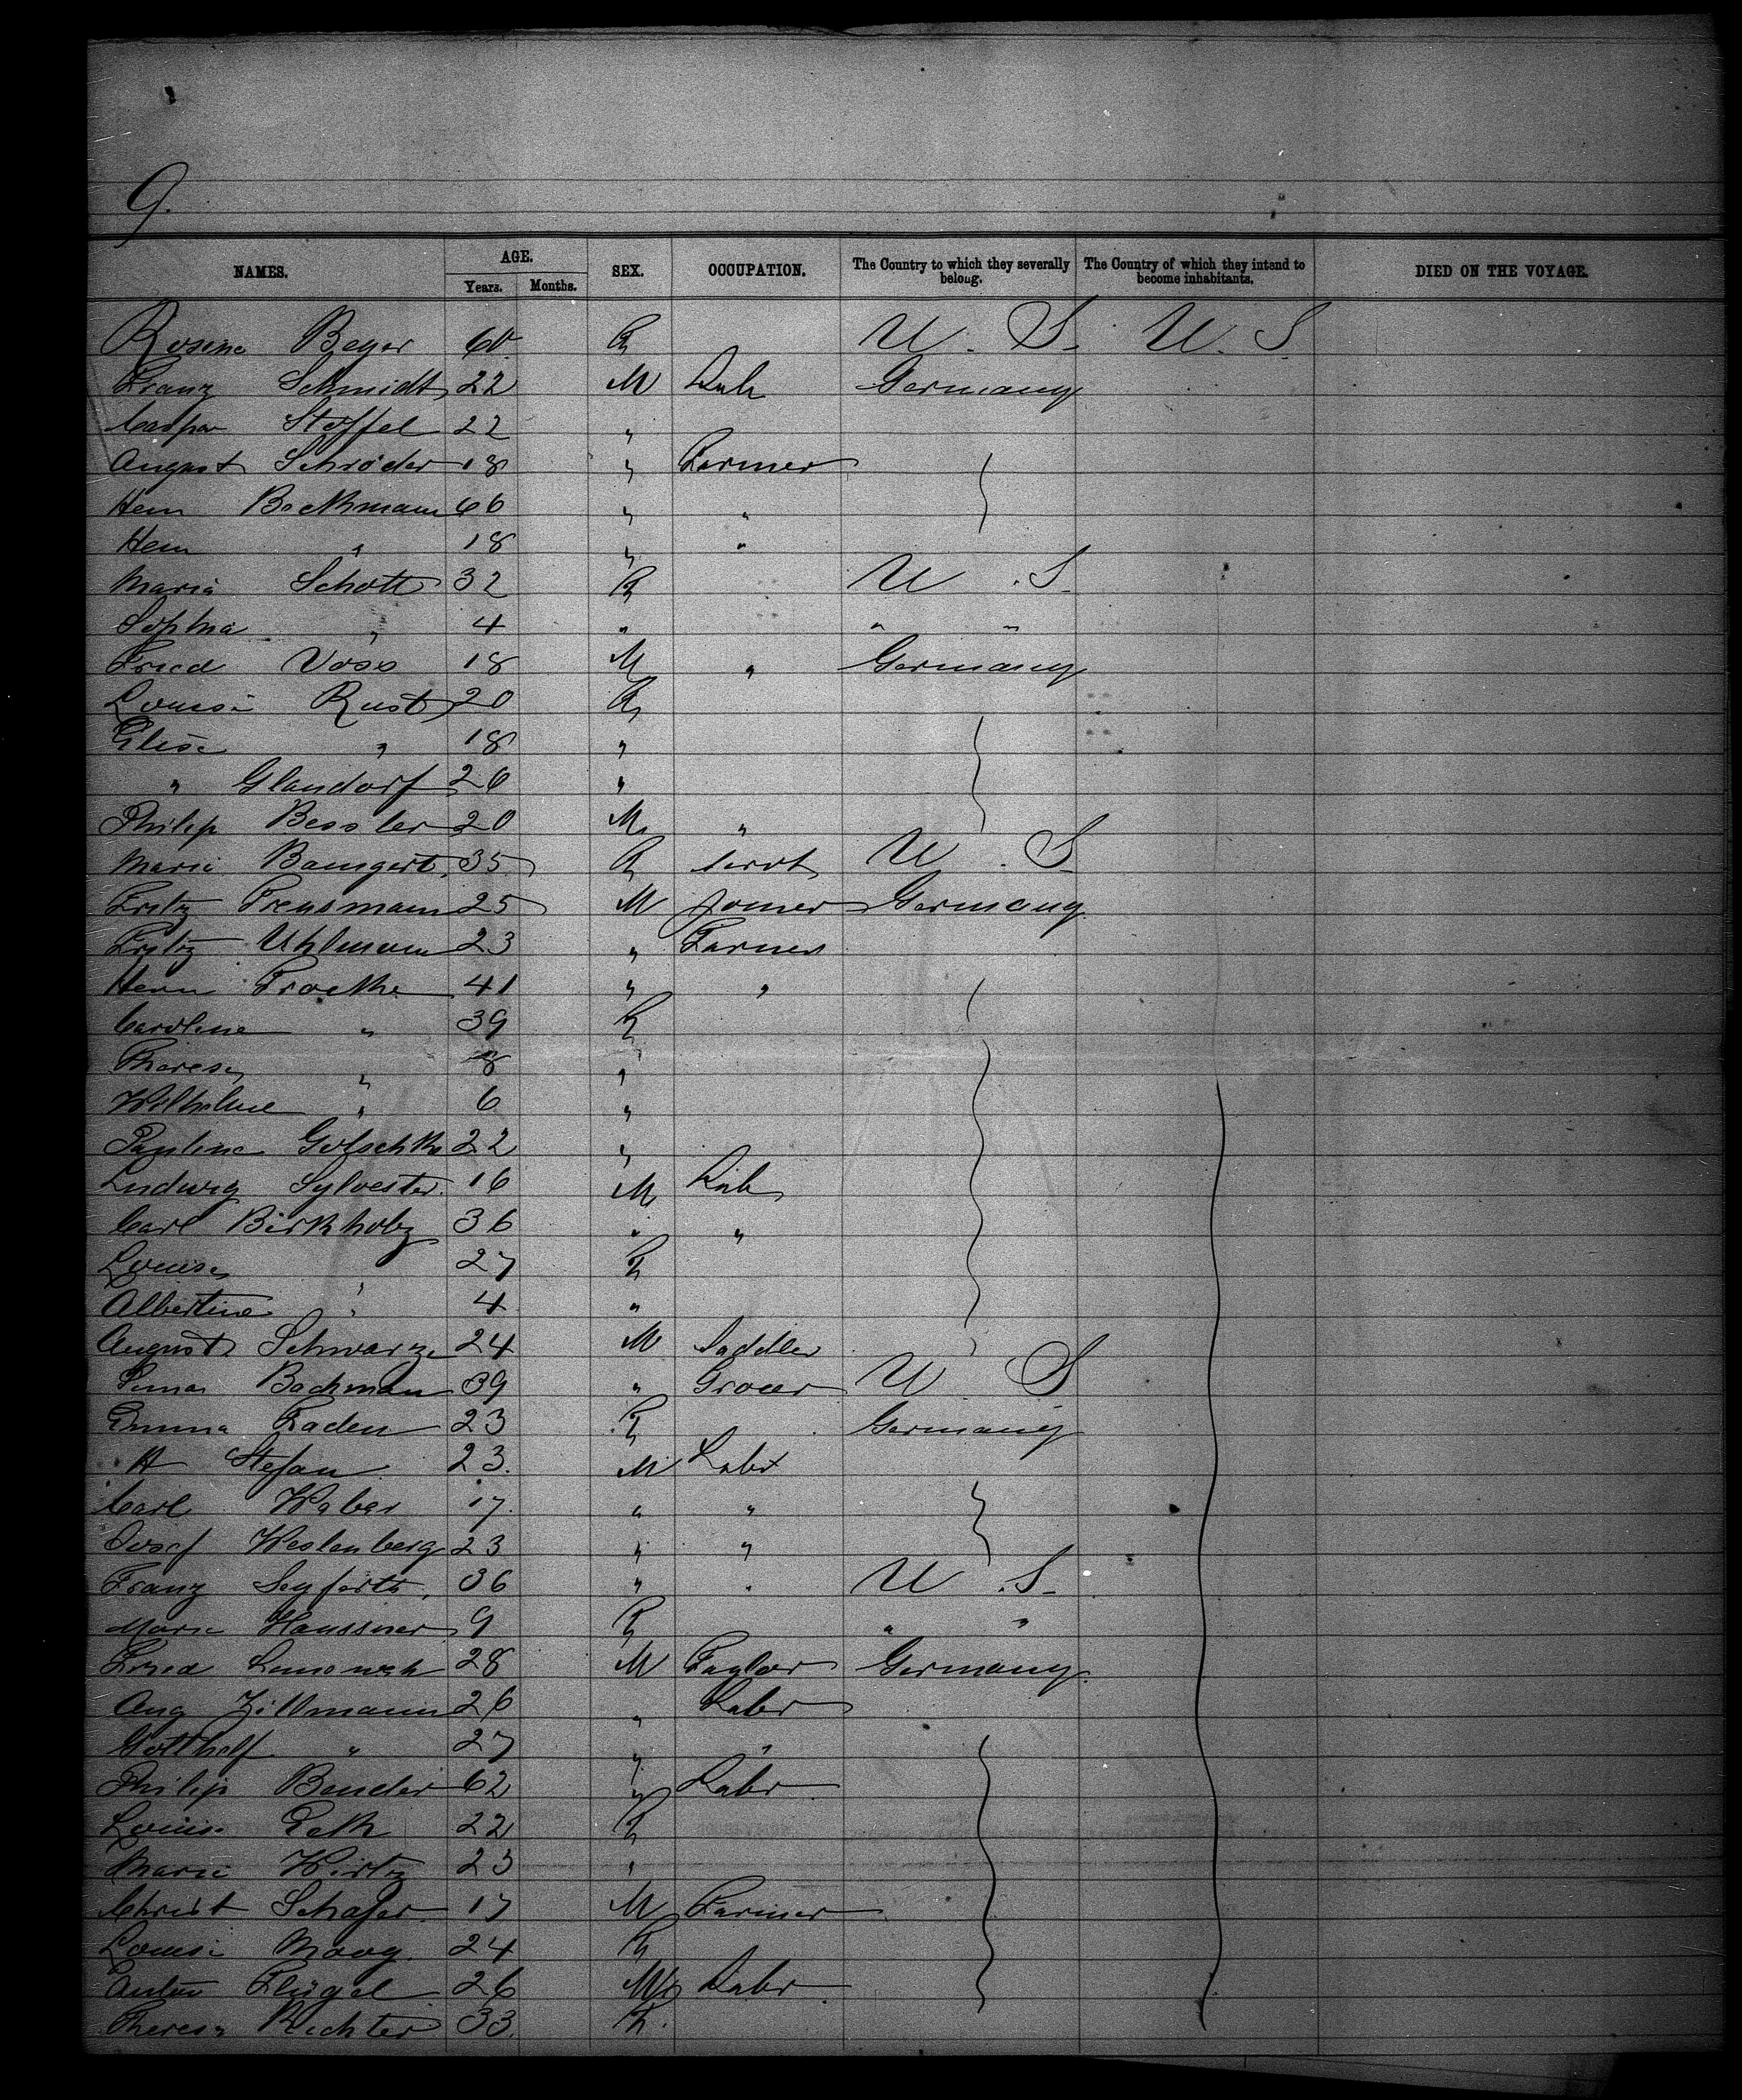 9.
NAMES. AGE. Years. Months. SEX. OCCUPATION. The Country to which they severally belong. The Country of which they intend to become inhabitants. DIED ON THE VOYAGE.
Rosine Beyer 60 F U. S. U. S.
Franz Schmidt 22 M Lab Germany
Caspar Stoffel 22 "
August Schröder 18 " Farmer
Hein Beckmann 66 " "
Hein " 18 " "
Maria Schott 32 F U. S.
Sophia " 4 " " "
Fried Voss 18 M " Germany
Louise Rust 20 F
Elise " 18 "
" Glandorf 26 "
Philip Bessler 20 M "
Marie Bamgert 35 F Servt U. S.
Fritz Frensmann 25 M Joiner Germany
Fritz Uhlmann 23 " Farmer
Herm 41 " "
Caroline " 39 F
Therese " 8 "
Wilhelme " 6 "
Pauline 22 "
Ludwig Sylvester 16 M Lab
Carl Birkholz 36 " "
Louise " 27 F
Albertine " 4 "
August Schwarze 24 M Saddler
Bachman 39 " Grocer U S
Emma Faden 23 F Germany
A Stefan 23. M Labr
Carl Weber 17. " "
Westenberg 23 " "
Franz Seyferth 36 " " U. S.
Marie Haussner 9 F " "
Fried 28 M Taylor Germany
Aug Zillmann 26 " Labr
Gotthelf " 27 " "
Philip Bender 62 " Labr
Louise 22 F
Marie Wirtz 23 "
Christ Schafer 17 M Farmer
Louise Moog 24 F
Anton Flügel 26 M Labr
Therese Richter 33. F.